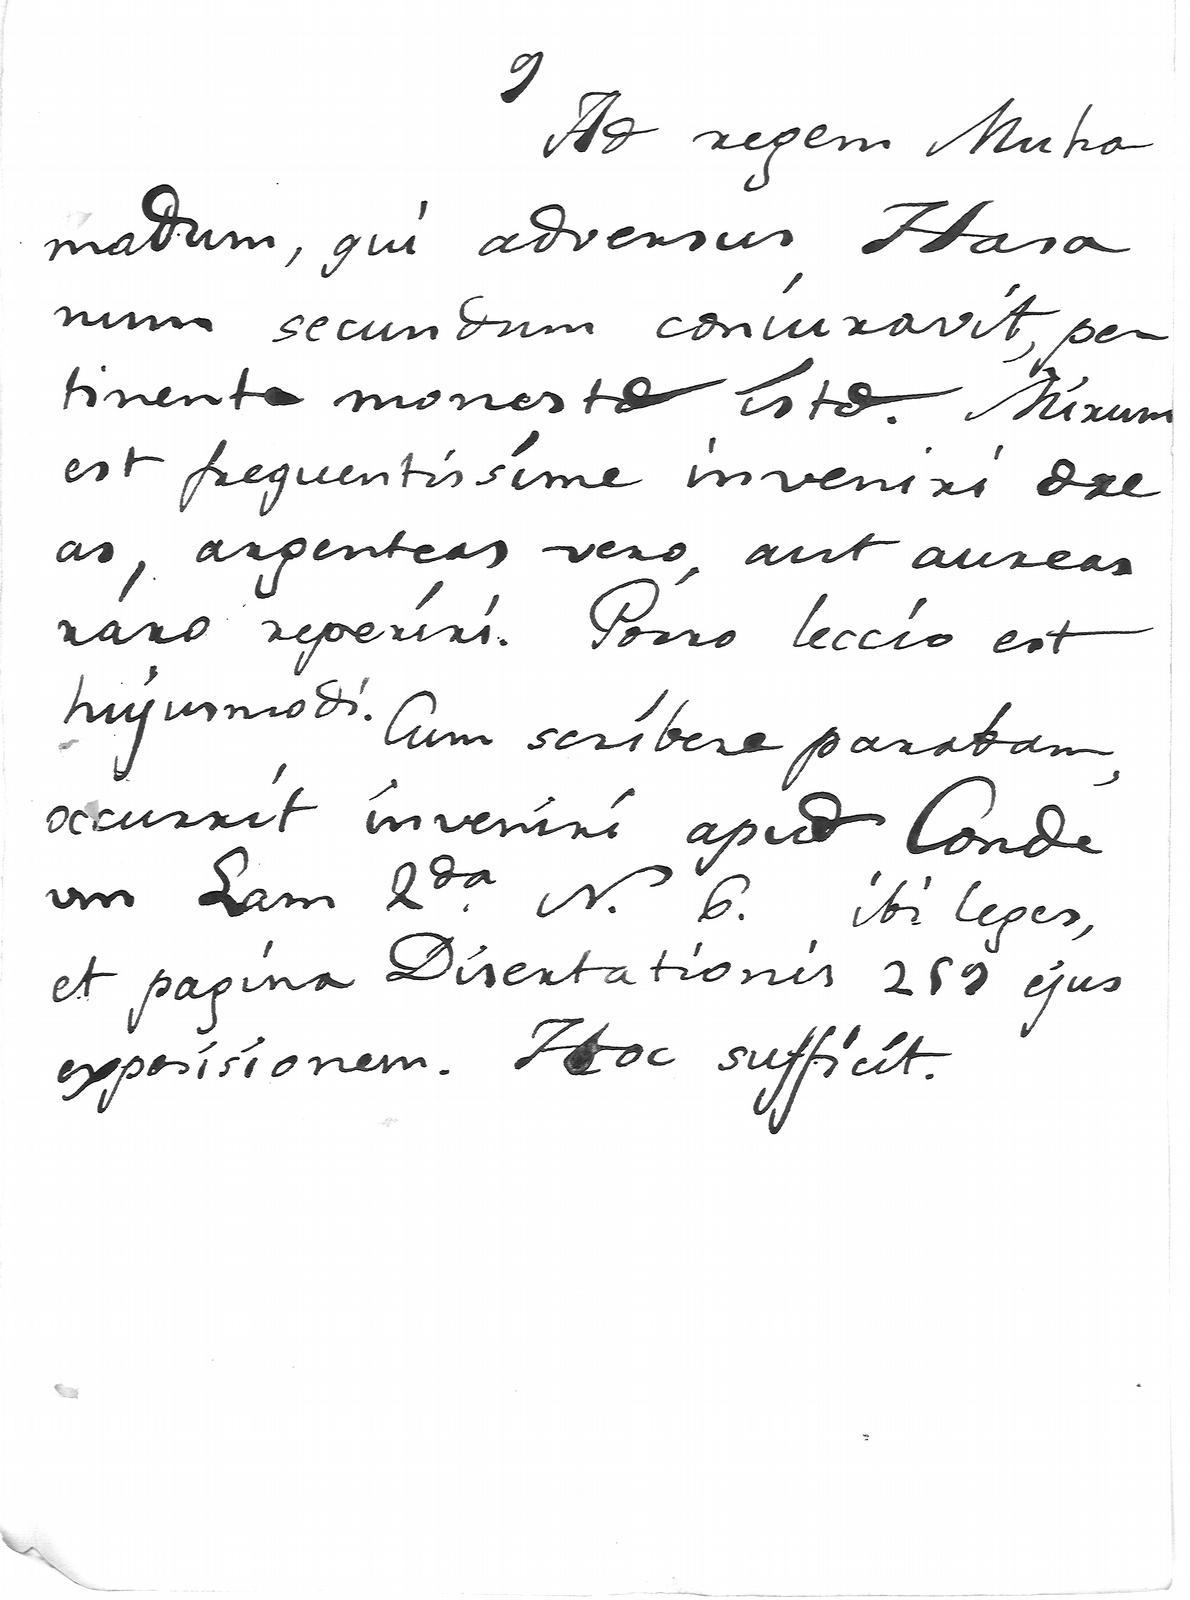 9
Ad regem Muha
madum, qui adversus Hasa
num secundum coniuravit, per
tinent monesta ista. Mirum
est frequentissime inveniri æræ
as, argenteas vero, aut aureas
raro reperiri. Porro leccio est
hujusmodi. Cum scribere parabam,
occurrit inveniri apud Conde
un Lam 2da. N. 6. ibi leges,
et pagina Disertationis 259 ejus
exposisionem. Hoc sufficit.